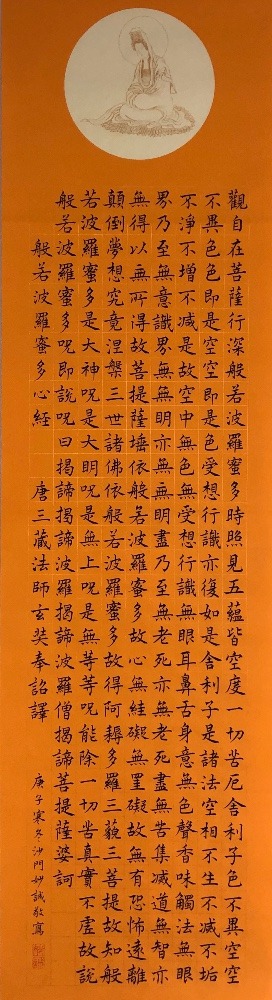 觀自在菩薩行深般若波羅蜜多時照見五蘊皆空度一切苦厄舍利子色不異空空
不異色色即是空空即是色受想行識亦復如是舍利子是諸法空相不生不滅不垢
不淨不增不減是故空中無色無受想行識無眼耳鼻舌身意無色聲香味觸法無眼
界乃至無意識界無無明亦無無明盡乃至無老死亦無老死盡無苦集滅道無智亦
無得以無所得故菩提薩埵依般若波羅蜜多故心無罣礙無罣礙故無有恐怖遠離
顛倒夢想究竟涅槃三世諸佛依般若波羅蜜多故得阿耨多羅三藐三菩提故知般
若波羅蜜多是大神呪是大明呪是無上呪是無等等呪能除一切苦真實不虛故說
般若波羅蜜多呪即說呪曰揭諦揭諦波羅揭諦波羅僧揭諦菩提薩婆訶
般若波羅蜜多心經 唐三藏法師玄奘奉詔譯
庚子寒冬沙門妙誠敬寫